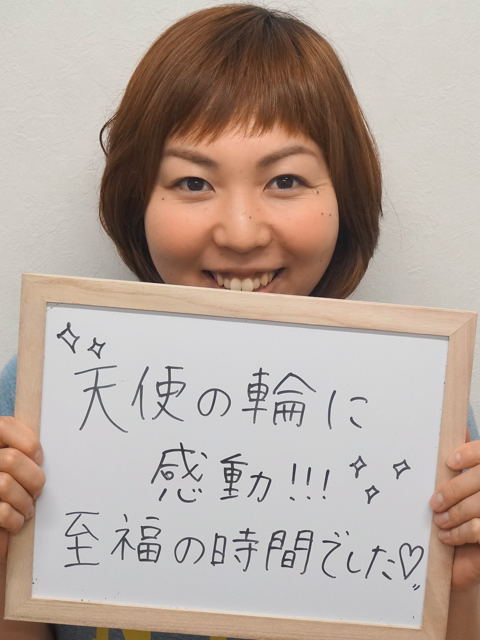 天使の輪に
感動!!!
至福の時間でした♡